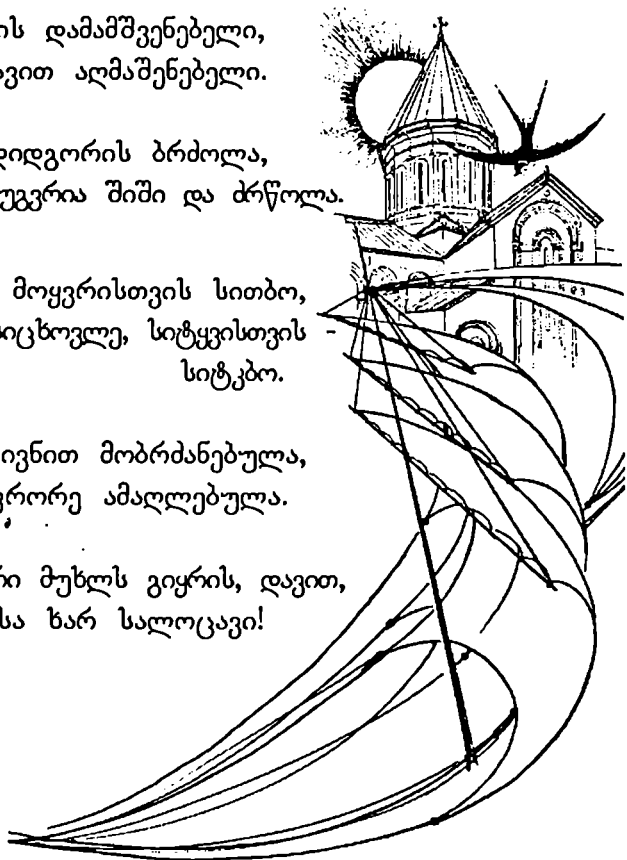 ის დამამშვენებელი,
ავით აღმაშენებელი.
დიდგორის ბრძოლა,
უგვრია შიში და ძრწოლა.
მოყვრისთვის სითბო,
სიცხოვლე, სიტყვისთვის -
სიტკბო.
ივნით მობრძანებულა,
ვრორე ამაღლებულა.
რი მუხლს გიყრის, დავით,
სა ხარ სალოცავი!